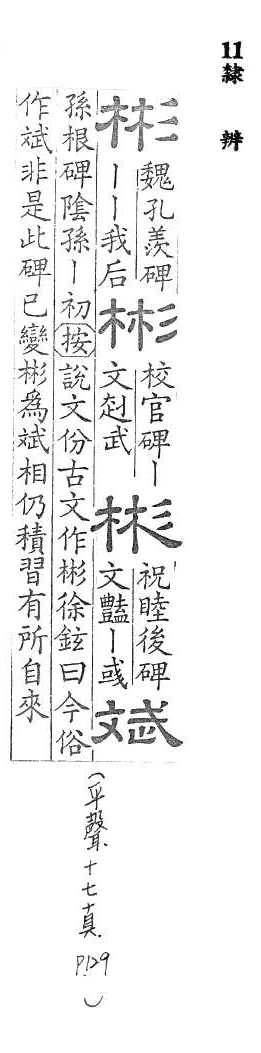 11隸 辨
彬
魏孔羨碑
丨丨我后
彬
校官碑丨
文武
彬
祝睦後碑
文豔丨彧
斌
孫根碑陰孫丨初按說文份古文作彬徐鉉曰今俗
作斌非是此碑已變彬為斌相仍積習有所自來
(平聲十七真 P.129)